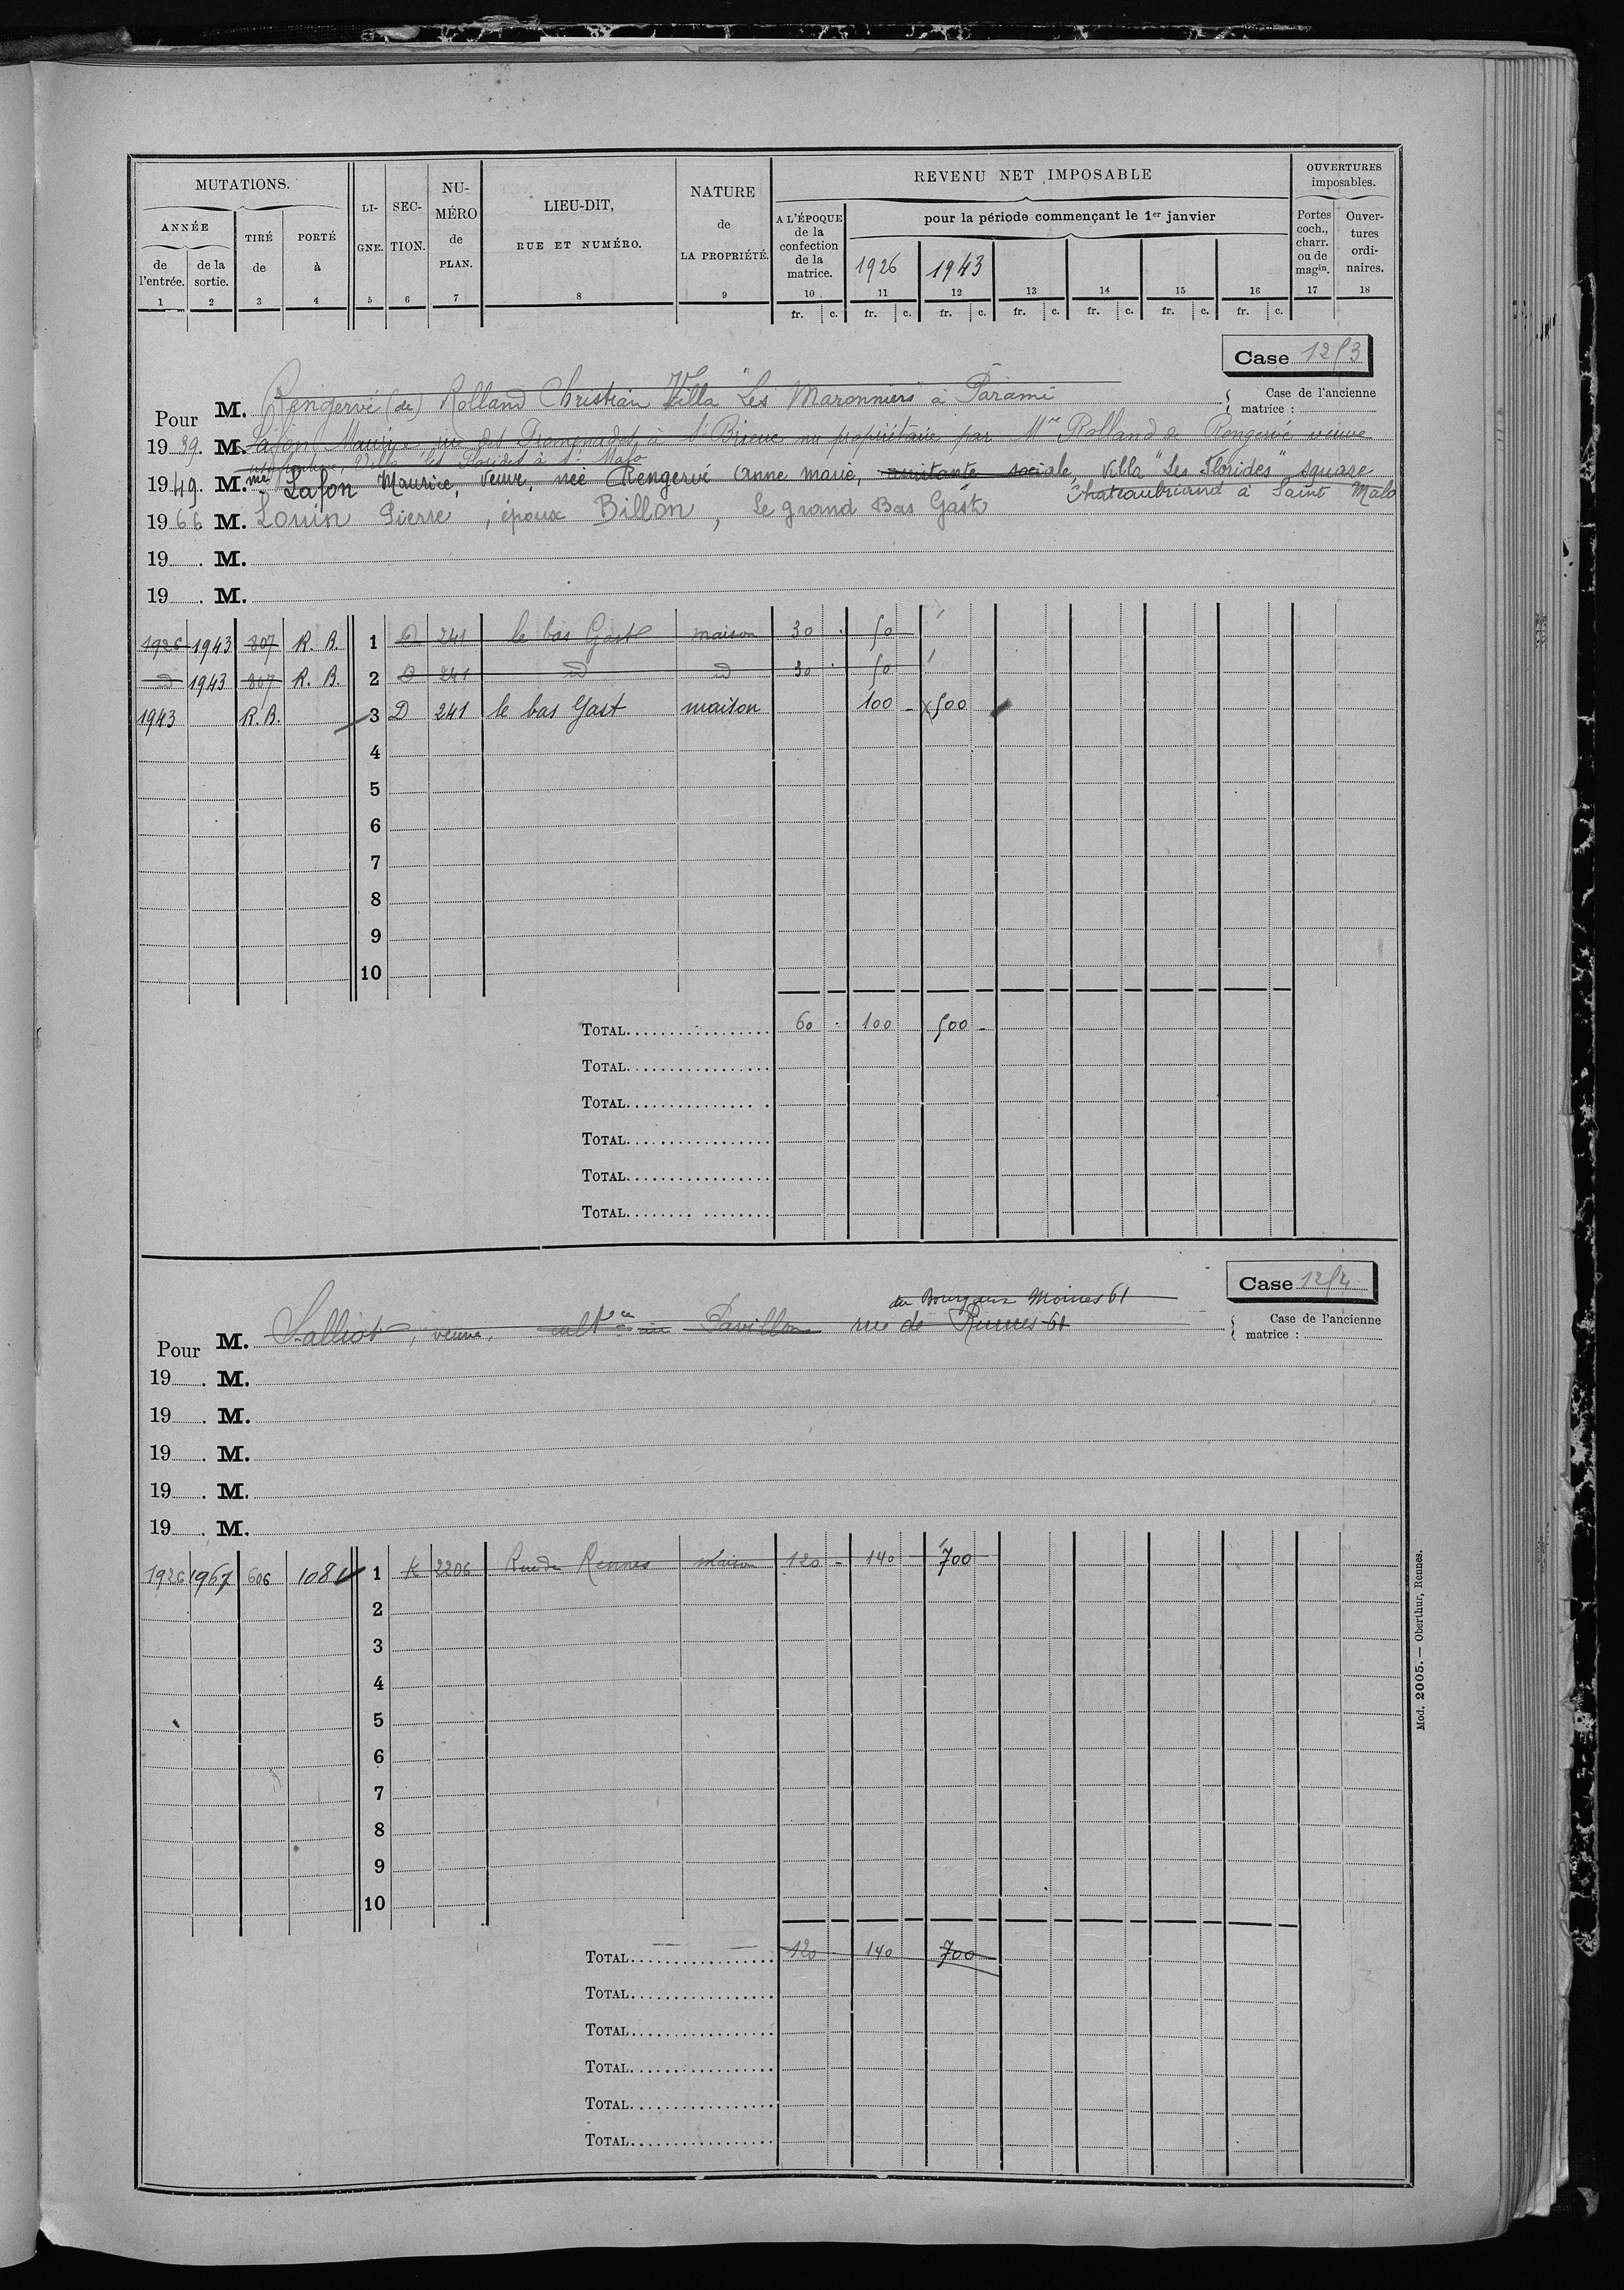 MUTATIONS.
ANNÉE
de l'entrée.
de la sortie.
TIRÉ de
PORTÉ à
LI-GNE.
SEC-TION.
NU-MÉRO de PLAN.
LIEU-DIT, RUE ET NUMÉRO.
NATURE de LA PROPRIÉTÉ.
REVENU NET IMPOSABLE
A L'ÉPOQUE de la confection de la matrice.
pour la période commençant le 1er janvier
1926 1943
OUVERTURES imposables.
Portes coch., charr. ou de magin.
Ouver-tures ordi-naires.
1 2 3 4 5 6 7 8 9 10 11 12 13 14 15 16 17 18
fr. c. fr. c. fr. c. fr. c. fr. c. fr. c. fr. c.
Case 1253
Case de l'ancienne matrice :
Pour M. Rengervé (de) Rolland Christian Villa "Les Maronniers à Paramé
1939. M. Lafon Maurice rue des Promenades à St Brieuc nu propriétaire par Mme Rolland de Rengervé veuve
usufruitière, Villa les Florides à St Malo
1949. M.me Lafon Maurice, veuve, née Rengervé Anne Marie, assistante sociale, Villa "Les Florides" square
Chateaubriand à Saint Malo
1966 M. Louin Pierre, époux Billon, Le grand Bas Gast
19 . M.
19 . M.
1926 1943 807 R. B. 1 D 241 le bas Gast maison 30 50
id 1943 807 R. B. 2 D 241 id id 30 50
1943 R. B. 3 D 241 le bas Gast maison 100 x500
4
5
6
7
8
9
10
TOTAL 60 100 500
TOTAL
TOTAL
TOTAL
TOTAL
TOTAL
Case 1254
Case de l'ancienne matrice :
du Bourg aux Moines 61
Pour M. Salliot, veuve, cultrice au Pavillon rue de Rennes 61
19 . M.
19 . M.
19 . M.
19 . M.
19 . M.
1926 1967 606 1081 1 K 2206 Rue de Rennes maison 120 140 700
2
3
4
5
6
7
8
9
10
TOTAL 120 140 700
TOTAL
TOTAL
TOTAL
TOTAL
TOTAL
Mod. 2005. — Oberthur, Rennes.